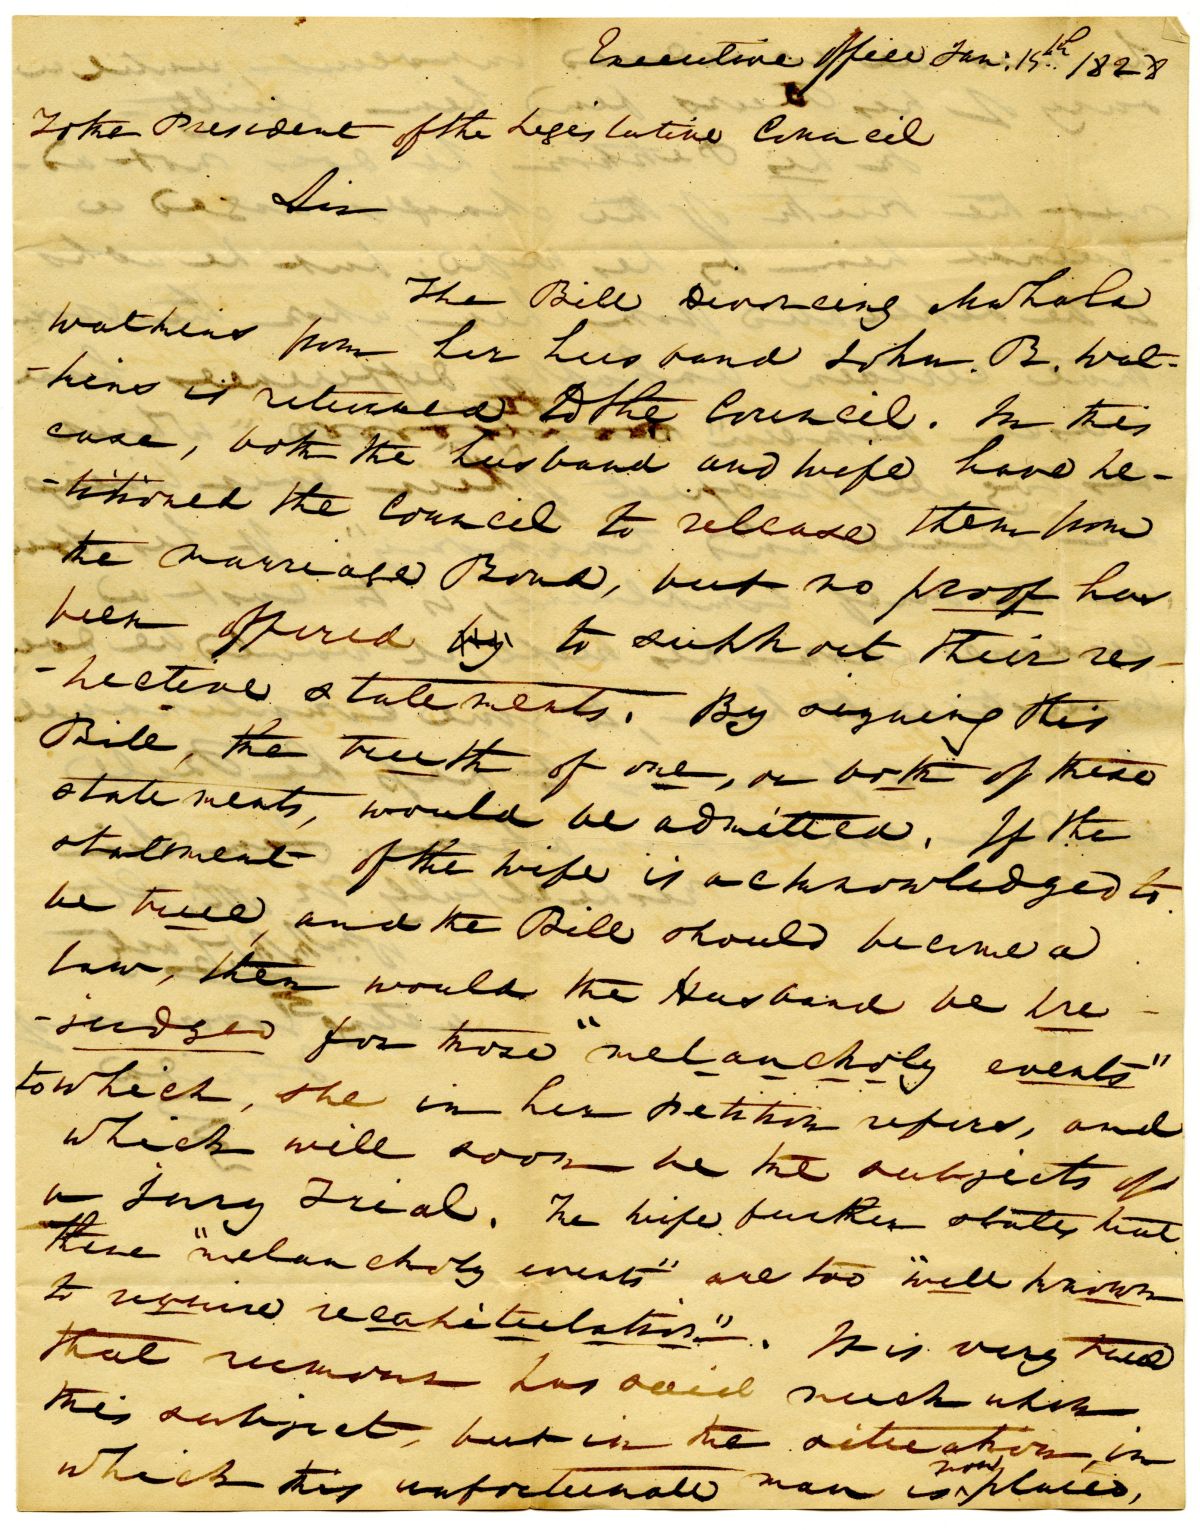 Executive Office Jan: 15th 1828
To the President of the Legislative Council
Sir
The Bill divorcing Mahala
Watkins from her husband John. B. Wat-
-kins is returned to the Council. In this
case, both the husband and wife have pe-
-titioned the Council to release them from
the marriage Bond, but no proof has
been offered by to support their res-
-pective statements. By signing this
Bill, the truth of one, or both of these
statements, would be admitted. If the
statment of the wife is acknowledged to
be true, and the Bill should become a
law, then would the Husband be pre-
-judged for those "melancholy events"
to which, she in her petition refers, and
which will soon be the subjects of
a Jury Trial. The wife further states that
these "melancholy events" are too "well known
to require recapitulation". It is very true
that rumour has said much upon
this subject, but in the situation, in
which this unfortunate man is now placed,